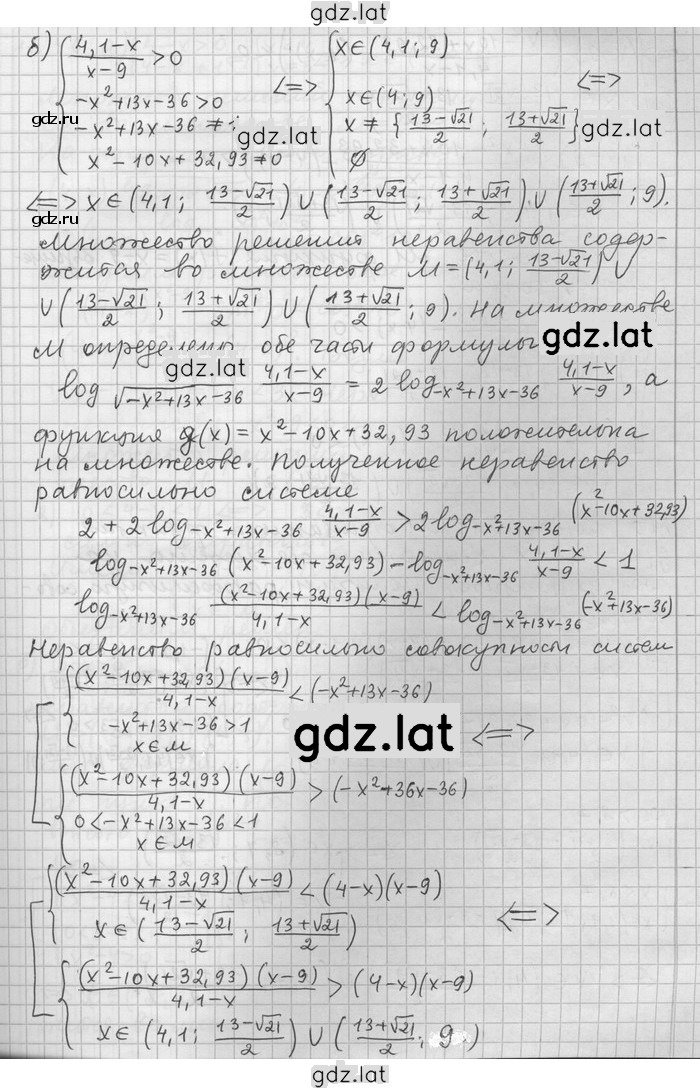 gdz.lat
б) { (4,1-x)/(x-9) > 0 <=> { x∈(4,1; 9) <=>
-x²+13x-36 > 0   x∈(4; 9)
gdz.lat
-x²+13x-36 ≠ 1;   x ≠ { (13-√21)/2 ; (13+√21)/2 }
gdz.lat gdz.lat
x²-10x+32,93 ≠ 0   ∅
<=> x∈(4,1; (13-√21)/2) ∪ ((13-√21)/2; (13+√21)/2) ∪ ((13+√21)/2; 9).
gdz.lat
Множество решений неравенства содер-
жится во множестве M = (4,1; (13-√21)/2) ∪
∪ ((13-√21)/2; (13+√21)/2) ∪ ((13+√21)/2; 9). На множестве
M определены обе части формулы
gdz.lat gdz.lat
log √(-x²+13x-36) (4,1-x)/(x-9) = 2 log -x²+13x-36 (4,1-x)/(x-9), а
функция g(x) = x²-10x+32,93 положительна
на множестве. Полученное неравенство
равносильно системе
2 + 2 log -x²+13x-36 (4,1-x)/(x-9) > 2 log -x²+13x-36 (x²-10x+32,93)
log -x²+13x-36 (x²-10x+32,93) - log -x²+13x-36 (4,1-x)/(x-9) < 1
log -x²+13x-36 (x²-10x+32,93)(x-9)/(4,1-x) < log -x²+13x-36 (-x²+13x-36)
Неравенство равносильно совокупности систем
[ { (x²-10x+32,93)(x-9)/(4,1-x) < (-x²+13x-36)
-x²+13x-36 > 1
x∈M
gdz.lat <=>
{ (x²-10x+32,93)(x-9)/(4,1-x) > (-x²+36x-36)
0 < -x²+13x-36 < 1
x∈M
[ { (x²-10x+32,93)(x-9)/(4,1-x) < (4-x)(x-9)
x∈((13-√21)/2; (13+√21)/2) <=>
{ (x²-10x+32,93)(x-9)/(4,1-x) > (4-x)(x-9)
x∈(4,1; (13-√21)/2) ∪ ((13+√21)/2; 9)
gdz.lat